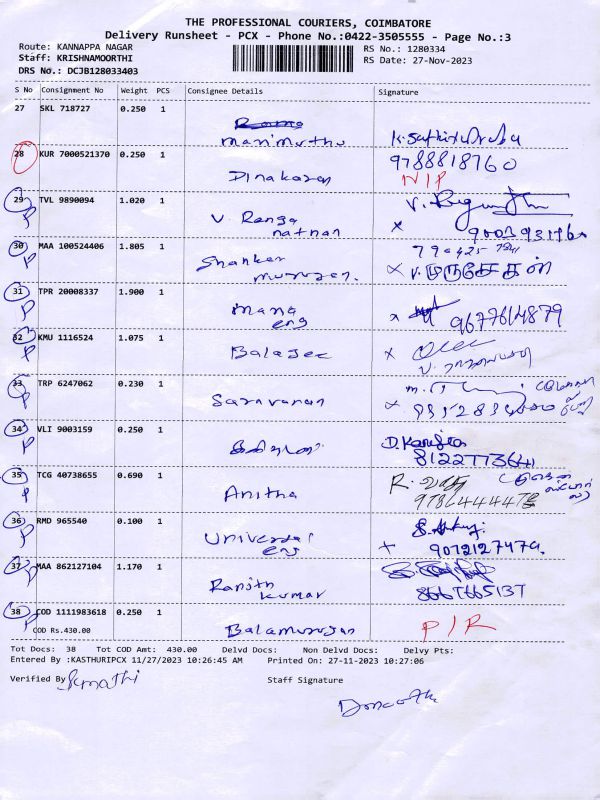 THE PROFESSIONAL COURIERS, COIMBATORE
Delivery Runsheet - PCX - Phone No.:0422-3505555 - Page No.:3
Route: KANNAPPA NAGAR
RS No.: 1280334
Staff: KRISHNAMOORTHI
RS Date: 27-Nov-2023
DRS No.: DCJB128033403
S No Consignment No Weight PCS Consignee Details Signature
27 SKL 718727 0.250 1
Manimuthu
28 KUR 7000521370 0.250 1 9788818760
Dinakaran NIP
29 TVL 9890094 1.020 1
V. Ranga
nathan
30 MAA 100524406 1.805 1
Shankar
murugan. V. முருகேசன்
31 TPR 20008337 1.900 1
mana
eng 9677614879
32 KMU 1116524 1.075 1
Balajee
33 TRP 6247062 0.230 1
Saravanan
34 VLI 9003159 0.250 1 D. Kaniga
8122773641
35 TCG 40738655 0.690 1 R.
Anitha
36 RMD 965540 0.100 1
Universal
eng 9072127479.
37 MAA 862127104 1.170 1
Ranjith
kumar 8667665137
38 COD 1111983618 0.250 1
COD Rs.430.00
Balamurugan P/R
Tot Docs: 38 Tot COD Amt: 430.00 Delvd Docs: Non Delvd Docs: Delvy Pts:
Entered By :KASTHURIPCX 11/27/2023 10:26:45 AM Printed On: 27-11-2023 10:27:06
Verified By Staff Signature